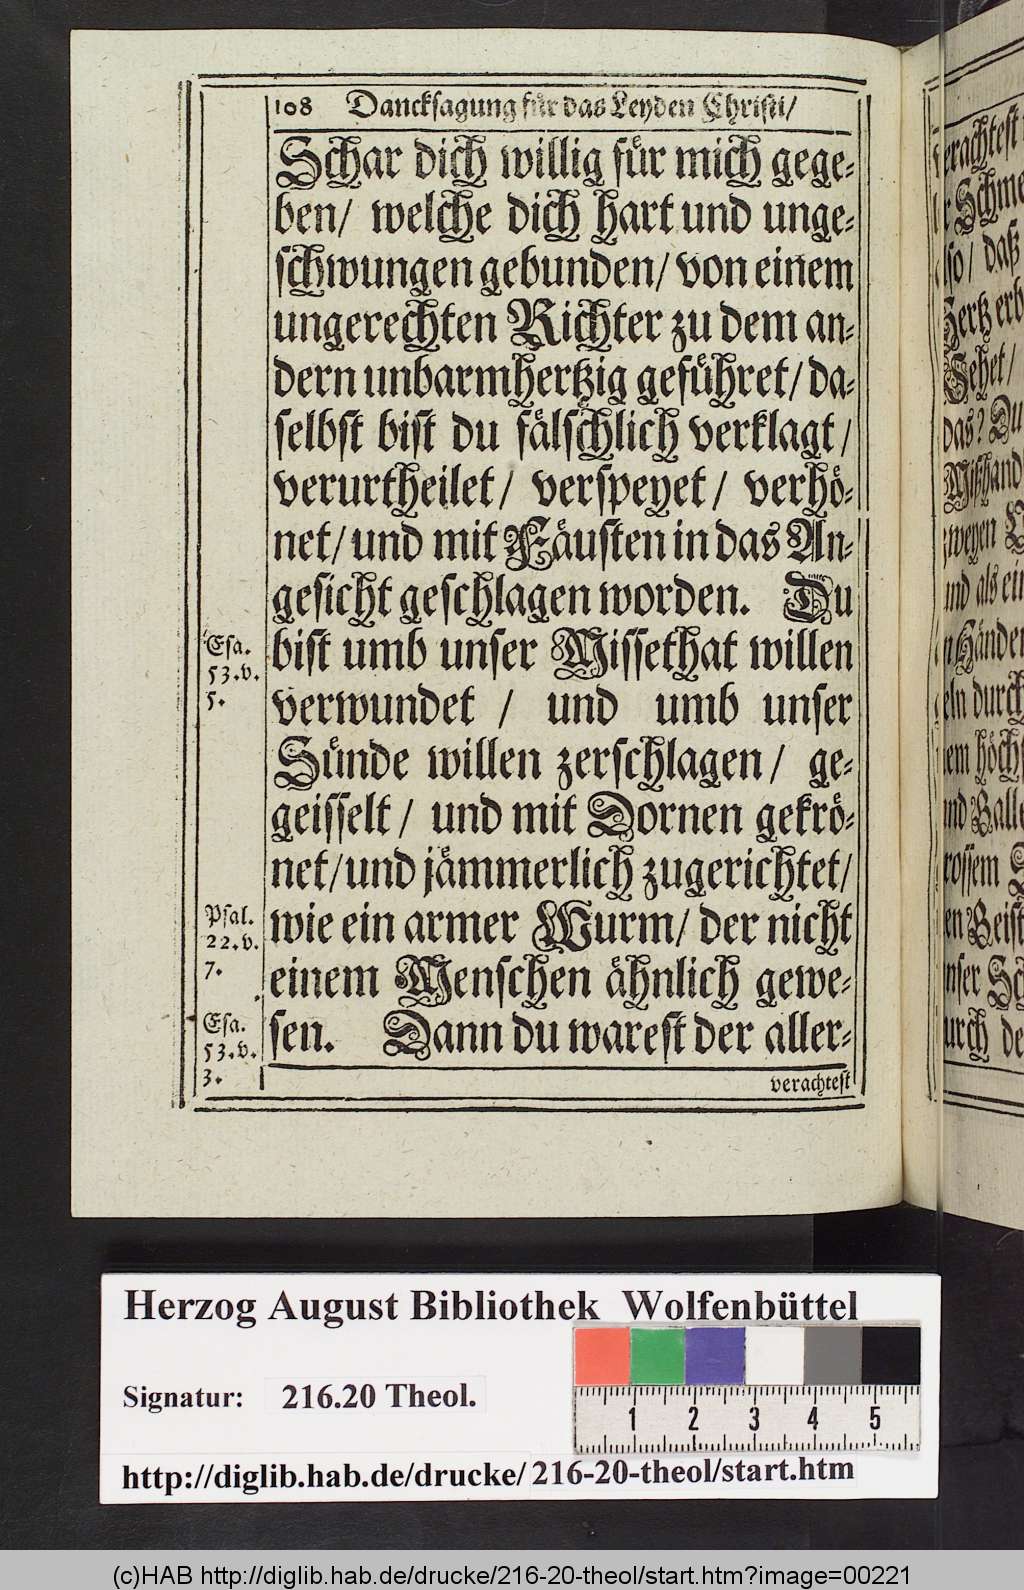 108 Dancksagung für das Leyden Christi/
Schar dich willig für mich gege-
ben/ welche dich hart und unge-
schwungen gebunden/ von einem
ungerechten Richter zu dem an-
dern unbarmhertzig geführet/ da-
selbst bist du fälschlich verklagt/
verurtheilet/ verspeyet/ verhö-
net/ und mit Fäusten in das An-
gesicht geschlagen worden. Du
bist umb unser Missethat willen
verwundet / und umb unser
Sünde willen zerschlagen/ ge-
geisselt/ und mit Dornen gekrö-
net/und jämmerlich zugerichtet/
wie ein armer Wurm/ der nicht
einem Menschen ähnlich gewe-
sen. Dann du warest der aller-
verachtest
Esa.
53.v.
5.
Psal.
22.v.
7.
Esa.
53.v.
3.
verachtest
Schme
so/ daß
Hertz erb
Gehet/
das? Du
Mißhand
zweyen
und als ein
Händen
eln durch
em höchs
und Galle
rossem
en Geist
nser Sch
urch de
Herzog August Bibliothek Wolfenbüttel
Signatur: 216.20 Theol.
1 2 3 4 5
http://diglib.hab.de/drucke/216-20-theol/start.htm
(c)HAB http://diglib.hab.de/drucke/216-20-theol/start.htm?image=00221